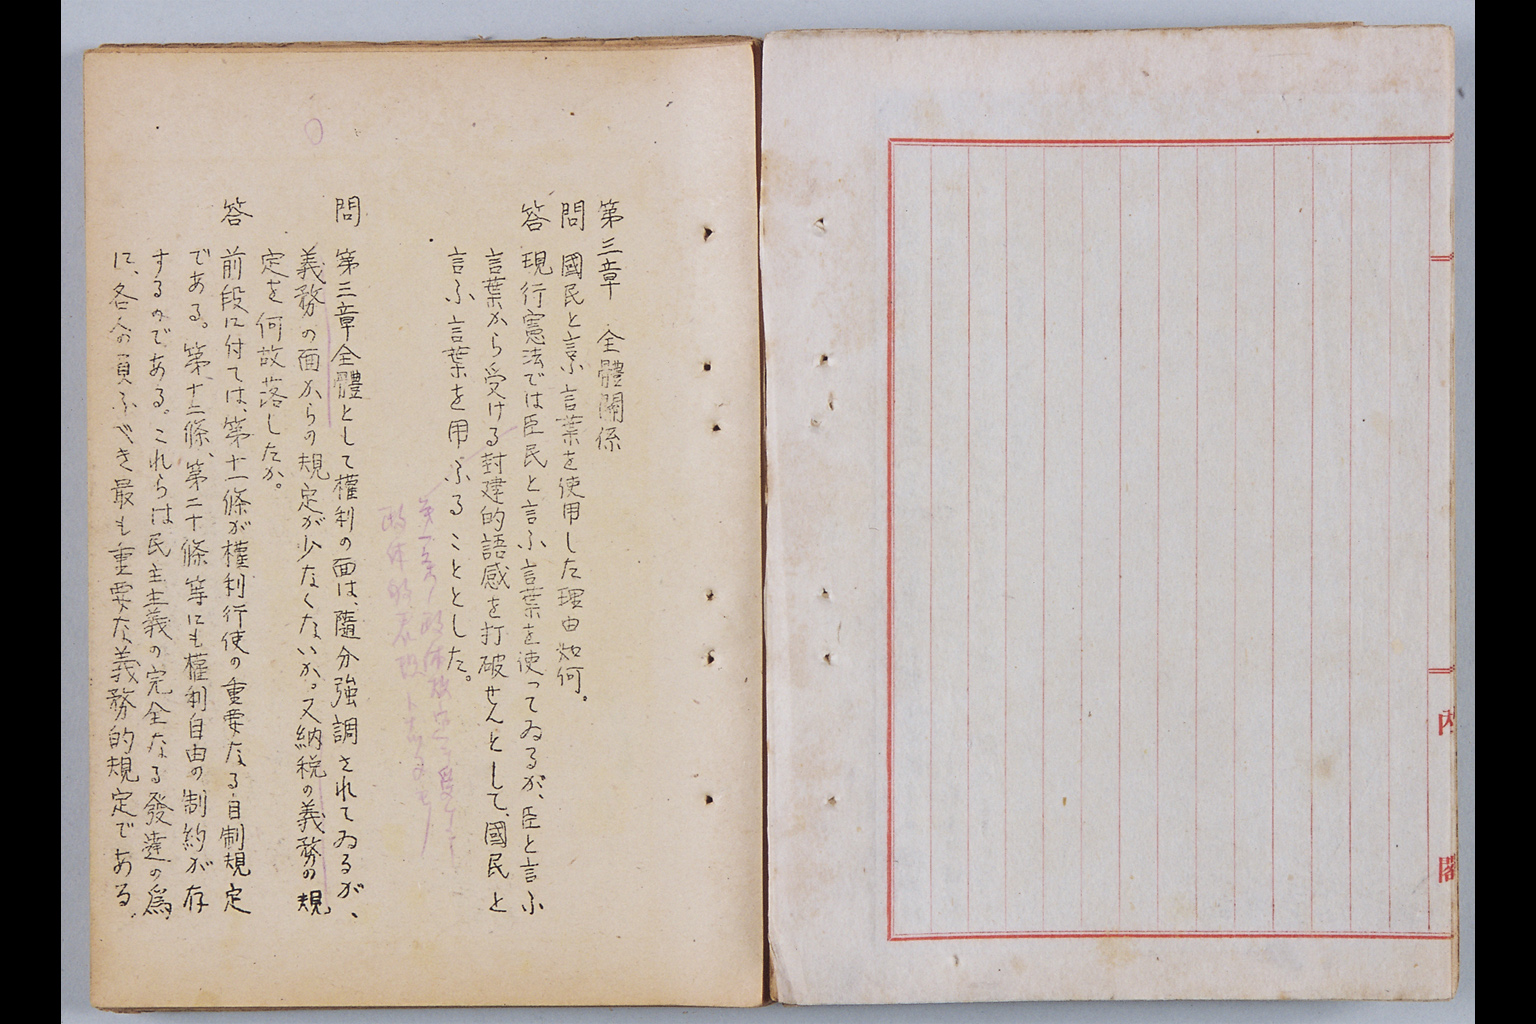 内閣
第三章 全體關係
問 國民と言ふ言葉を使用した理由如何。
答 現行憲法では臣民と言ふ言葉を使つてゐるが、臣と言ふ
言葉から受ける封建的語感を打破せんとして、國民と
言ふ言葉を用ふることとした。
問 第三章全體として權利の面は、隨分強調されてゐるが、
義務の面からの規定が少なくないか。又納税の義務の規
定を何故落したか。
答 前段に付ては、第十一條が權利行使の重要なる自制規定
である。第十二條、第二十條等にも權利自由の制約が存
するのである。これらは民主主義の完全なる發達の爲
に、各人の負ふべき最も重要な義務的規定である。